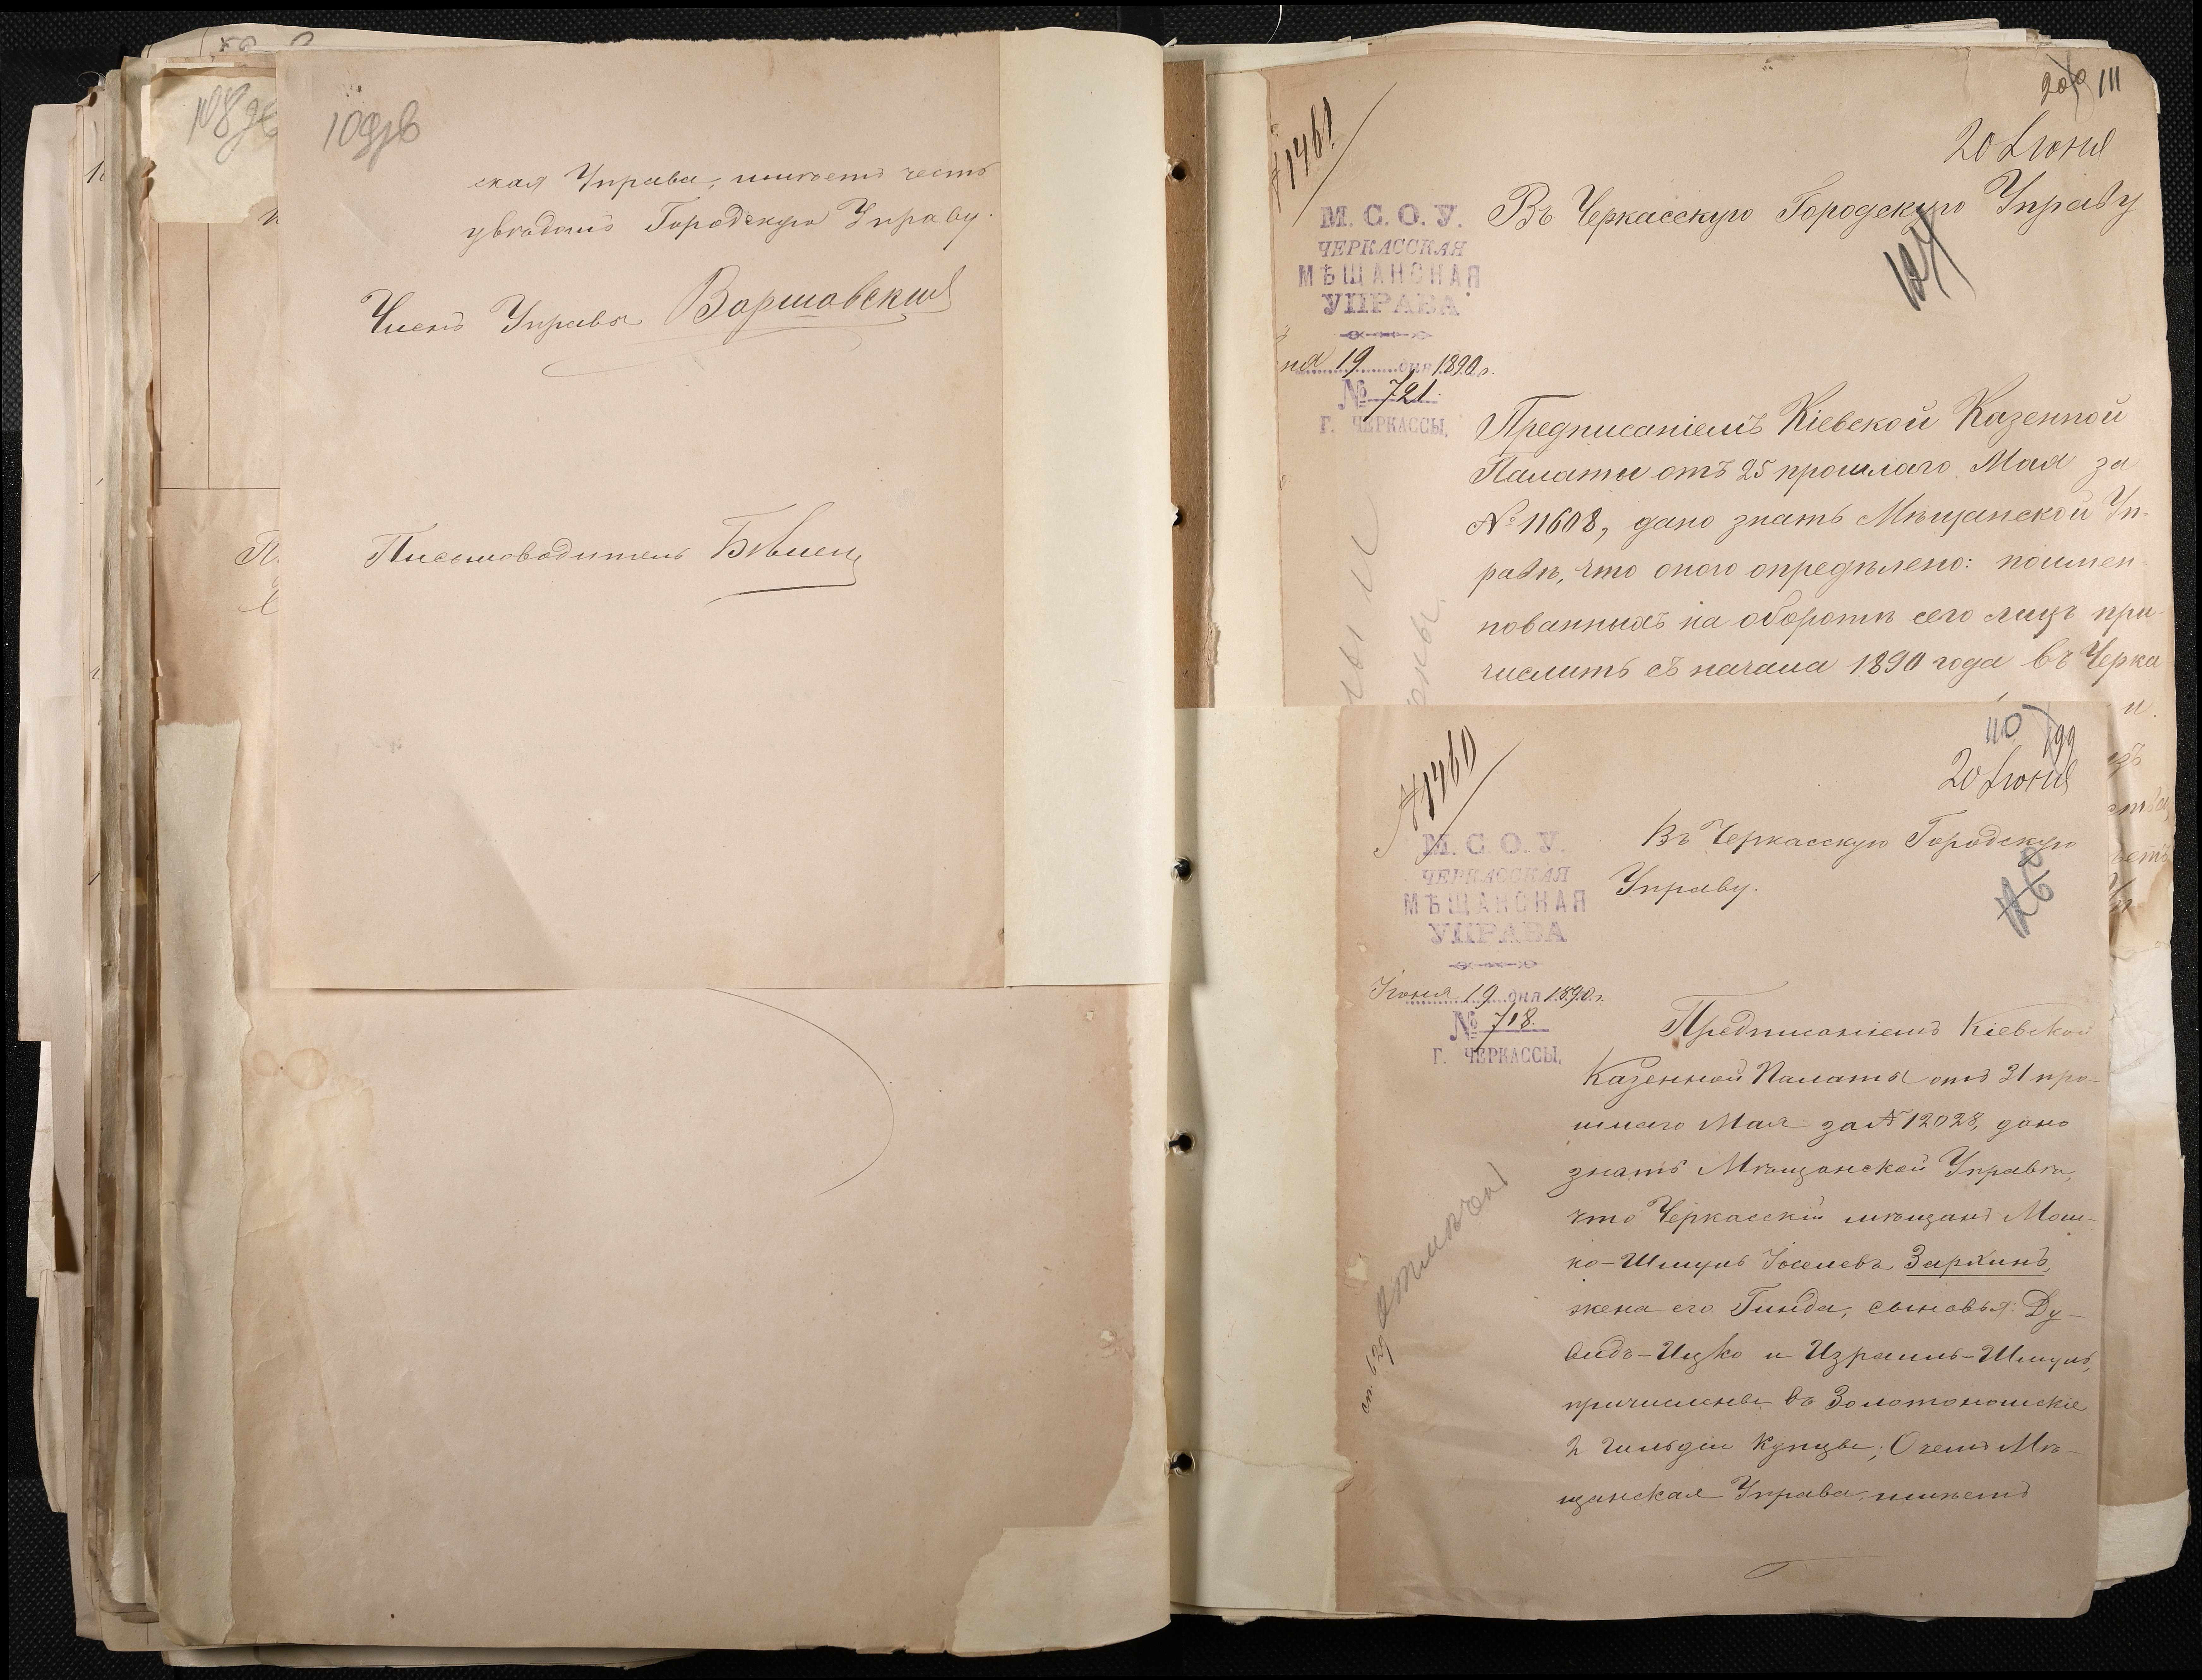 ская Управа, имѣетъ честь
увѣдомъ Городскую Управу.
Членъ Управы Варшавскій
Письмоводитель
111
№ 1461
20 Іюня
Въ Черкасскую Городскую Управу
М. С. О. У.
ЧЕРКАССКАЯ
МѢЩАНСКАЯ
УПРАВА
ня 19 дня 1890 г.
№ 721.
Г. ЧЕРКАССЫ.
Предписаніемъ Кіевской Казенной
Палаты отъ 25 прошлаго Мая за
№ 11608, дано знать Мѣщанской Уп-
равѣ, что оною опредѣлено: поимен-
нованныхъ на оборотѣ сего лицъ при-
числить съ начала 1890 года въ Черка
110 199
№ 1460
20 Іюня
Въ Черкасскую Городскую
Управу.
М. С. О. У.
ЧЕРКАССКАЯ
МѢЩАНСКАЯ
УПРАВА
Іюня 19 дня 1890 г.
№ 718.
Г. ЧЕРКАССЫ.
Предписаніемъ Кіевской
Казенной Палаты отъ 31 про-
шлаго Мая за № 12028, дано
знать Мѣщанской Управѣ,
что Черкасскій мѣщанъ Мош-
ко-Шмуль Іоселевъ Зархинъ,
жена его Гинда, сыновья: Ду-
видъ-Ицко и Израиль-Шмуль,
причислены въ Золотоношскіе
2 гильдіи купцы; О чемъ Мѣ-
щанская Управа, имѣетъ
отмѣчен